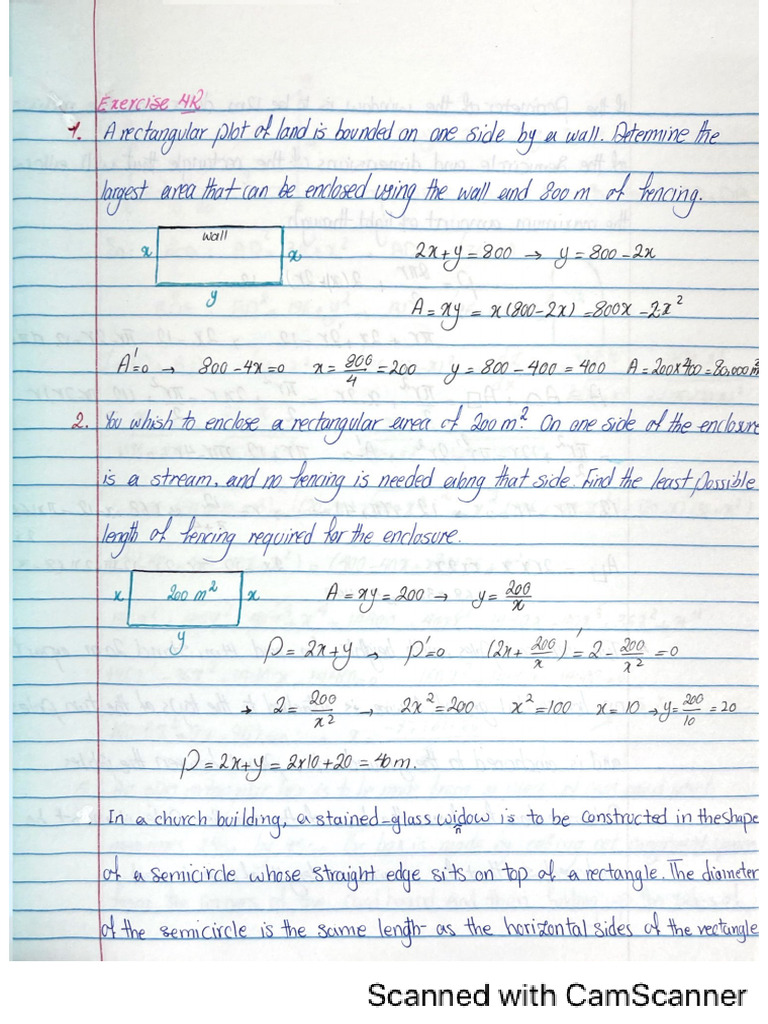 Exercise 4R
1. A rectangular plot of land is bounded on one side by a wall. Determine the
largest area that can be enclosed using the wall and 800 m of fencing.
wall
x x 2x+y=800 → y=800-2x
y
A=xy=x(800-2x)=800x-2x²
A'=0 → 800-4x=0 x=800/4=200 y=800-400=400 A=200x400=80,000m²
2. You whish to enclose a rectangular area of 200m². On one side of the enclosure
is a stream, and no fencing is needed along that side. Find the least possible
length of fencing required for the enclosure.
x 200 m² x A=xy=200 → y=200/x
y P=2x+y → P'=0 (2x+200/x)'=2-200/x²=0
→ 2=200/x² → 2x²=200 x²=100 x=10 → y=200/10=20
P=2x+y=2x10+20=40m.
. In a church building, a stained-glass window is to be constructed in the shape
of a semicircle whose straight edge sits on top of a rectangle. The diameter
of the semicircle is the same length as the horizontal sides of the rectangle
Scanned with CamScanner